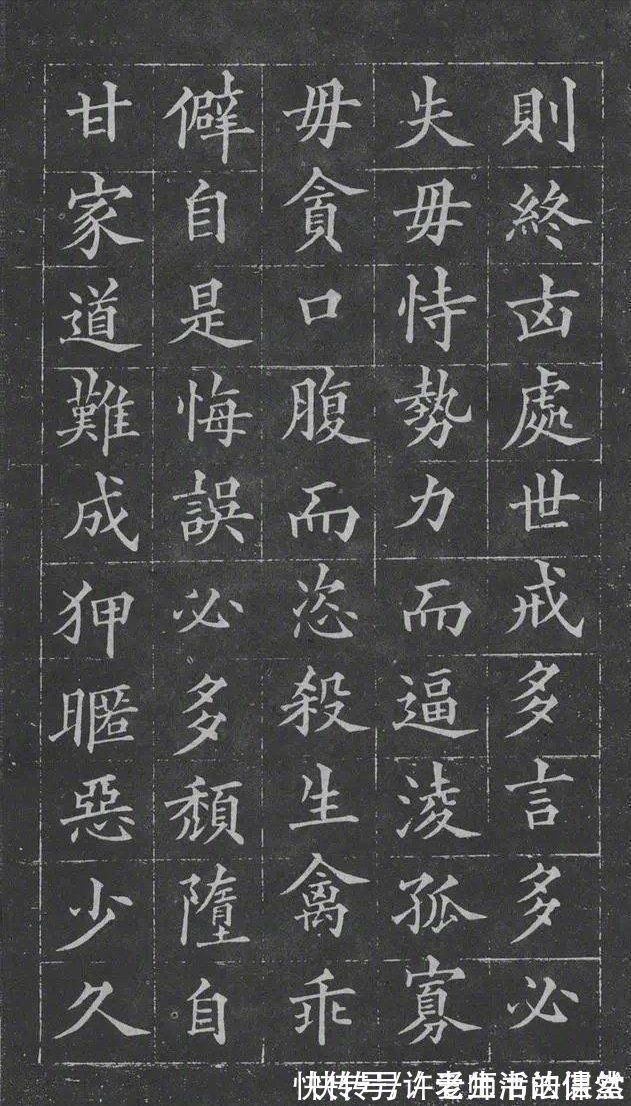 則終凶處世戒多言多必
失毋恃勢力而逼淩孤寡
毋貪口腹而恣殺生禽乖
僻自是悔誤必多頽墮自
甘家道難成狎暱惡少久